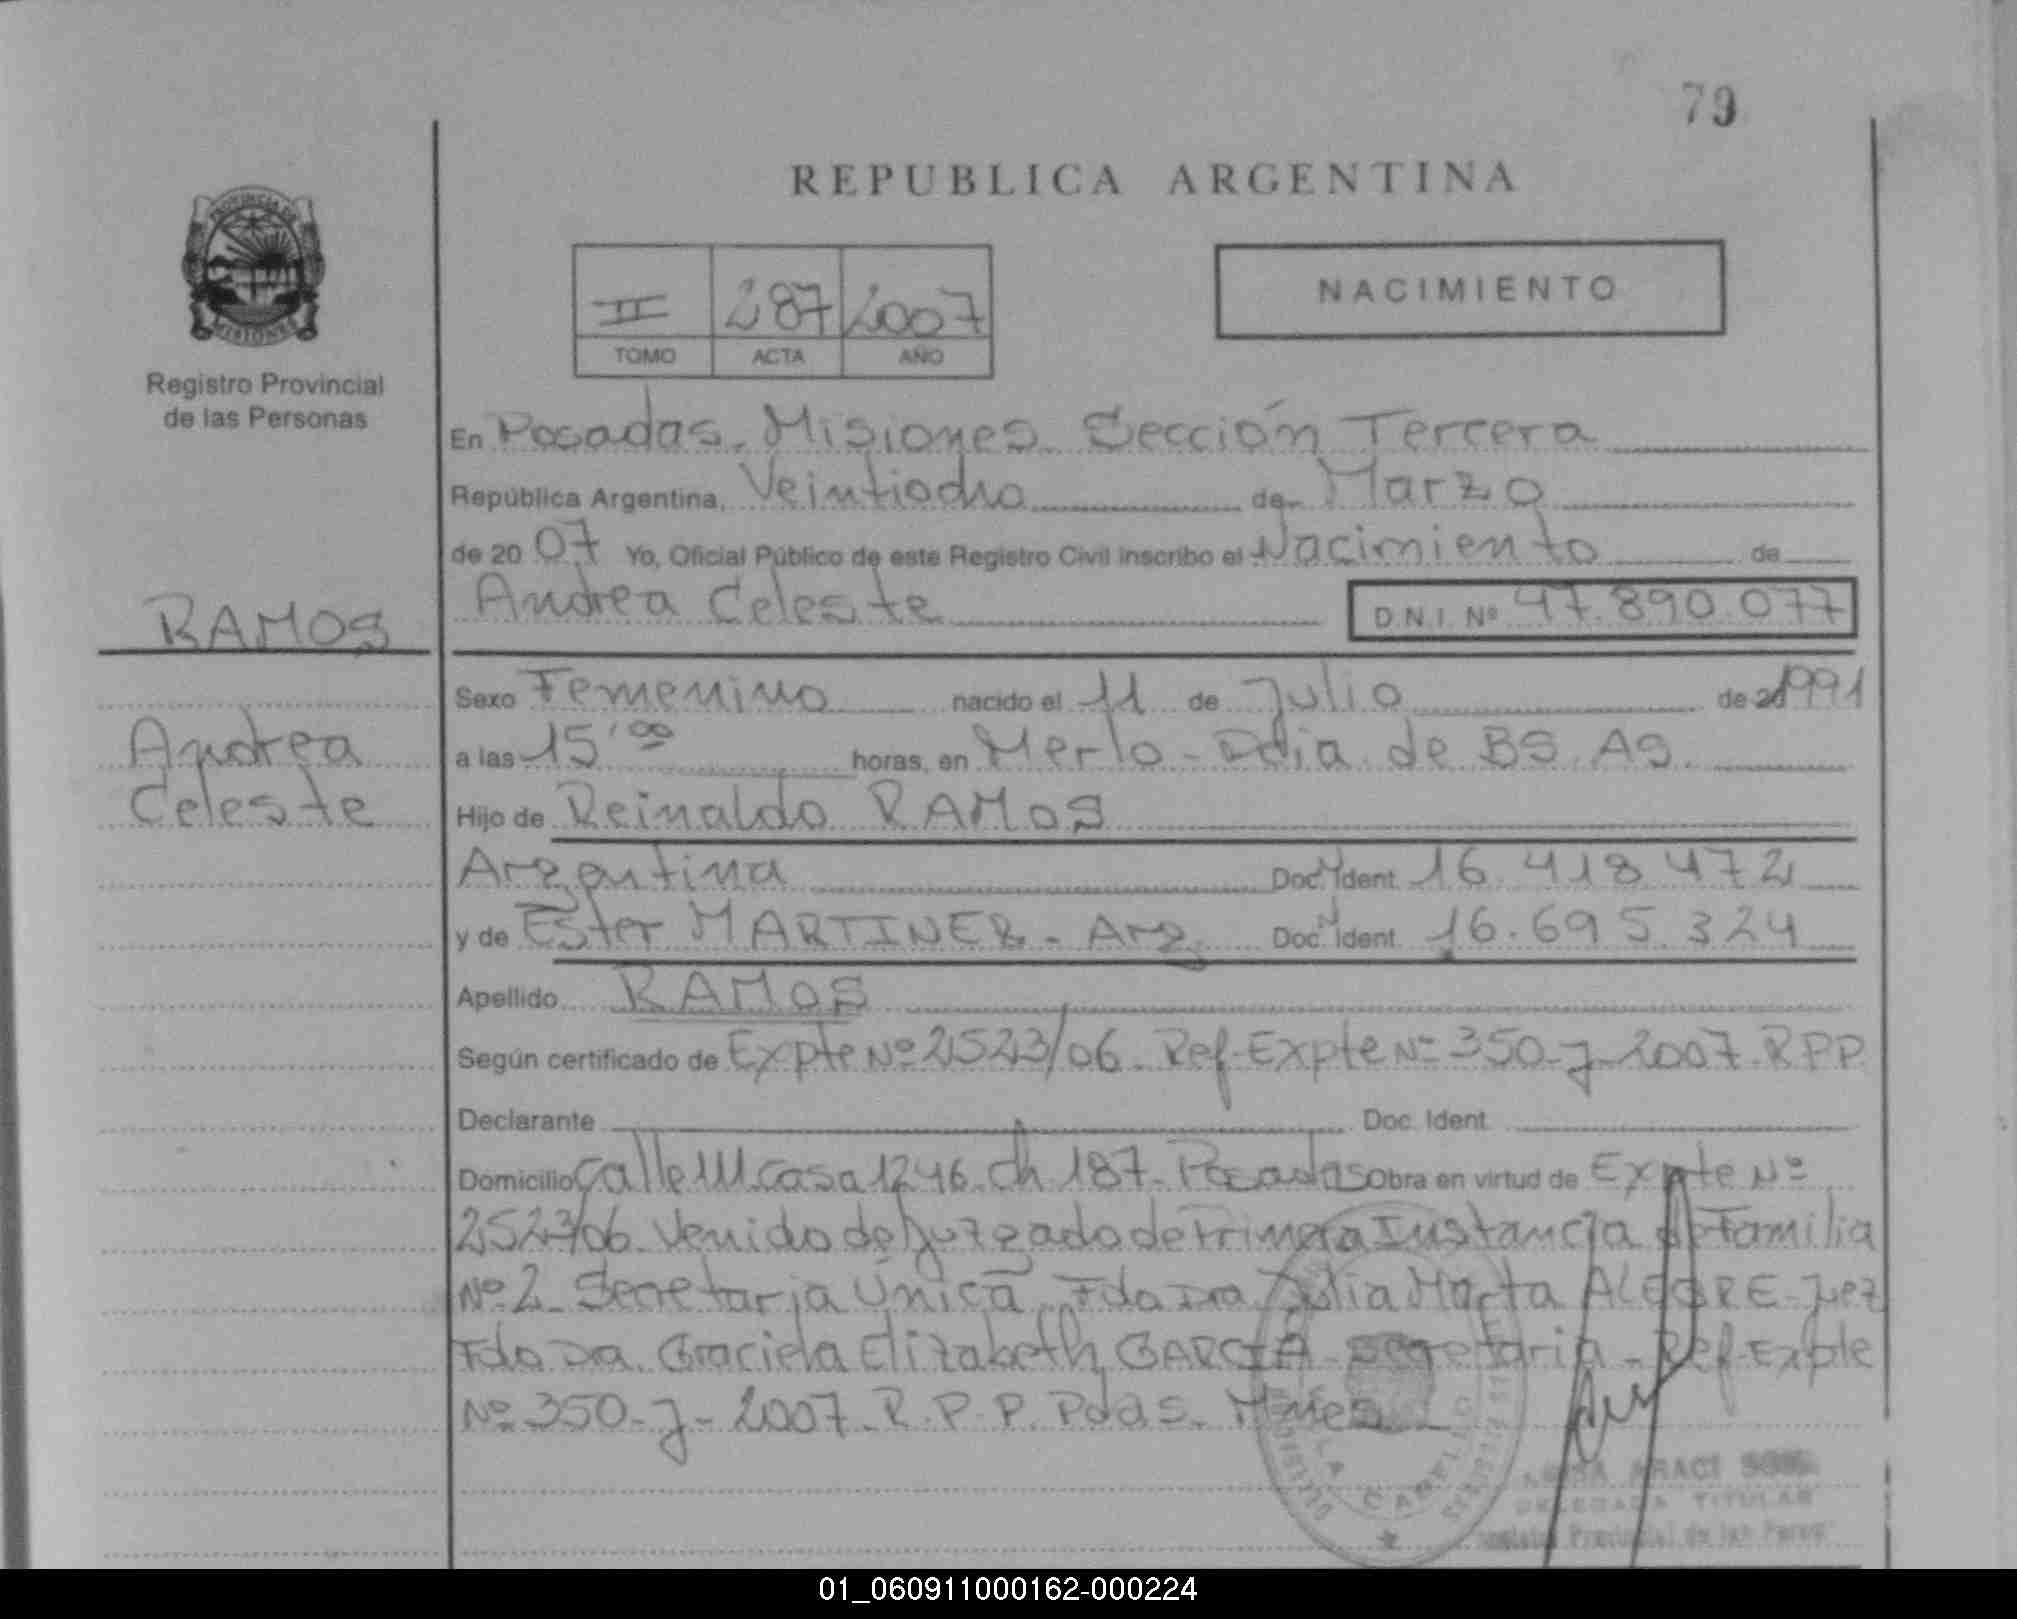 79
REPUBLICA ARGENTINA
PROVINCIA DE
MISIONES
Registro Provincial
de las Personas
II 287 2007
TOMO ACTA AÑO
NACIMIENTO
En Posadas. Misiones. Sección Tercera
República Argentina, Veintiocho de Marzo
de 20 07 Yo, Oficial Público de este Registro Civil inscribo el Nacimiento de
Andrea Celeste D.N.I. Nº 47.890.077
RAMOS
Andrea
Celeste
Sexo Femenino nacido el 11 de Julio de 1991
a las 15'00 horas, en Merlo - Pcia. de BS. AS.
Hijo de Reinaldo RAMOS
Argentina Doc. Ident. 16.418.472
y de Ester MARTINEZ - Arg. Doc. Ident. 16.695.324
Apellido RAMOS
Según certificado de Expte Nº 2523/06. Ref. Expte Nº 350-J-2007. R.P.P.
Declarante Doc. Ident.
Domicilio Calle 111. Casa 1246. Ch 187. Posadas Obra en virtud de Expte Nº
2523/06. Venido de Juzgado de Primera Instancia de Familia
Nº 2. Secretaria Unica. Fdo Dra. Julia Marta ALEGRE - Juez
Fdo Dra. Graciela Elizabeth GARCIA - Secretaria - Ref. Expte
Nº 350-J-2007. R.P.P. Pdas. Mnes
ARACI
DELEGADA TITULAR
Registro Provincial de las Person
01_060911000162-000224